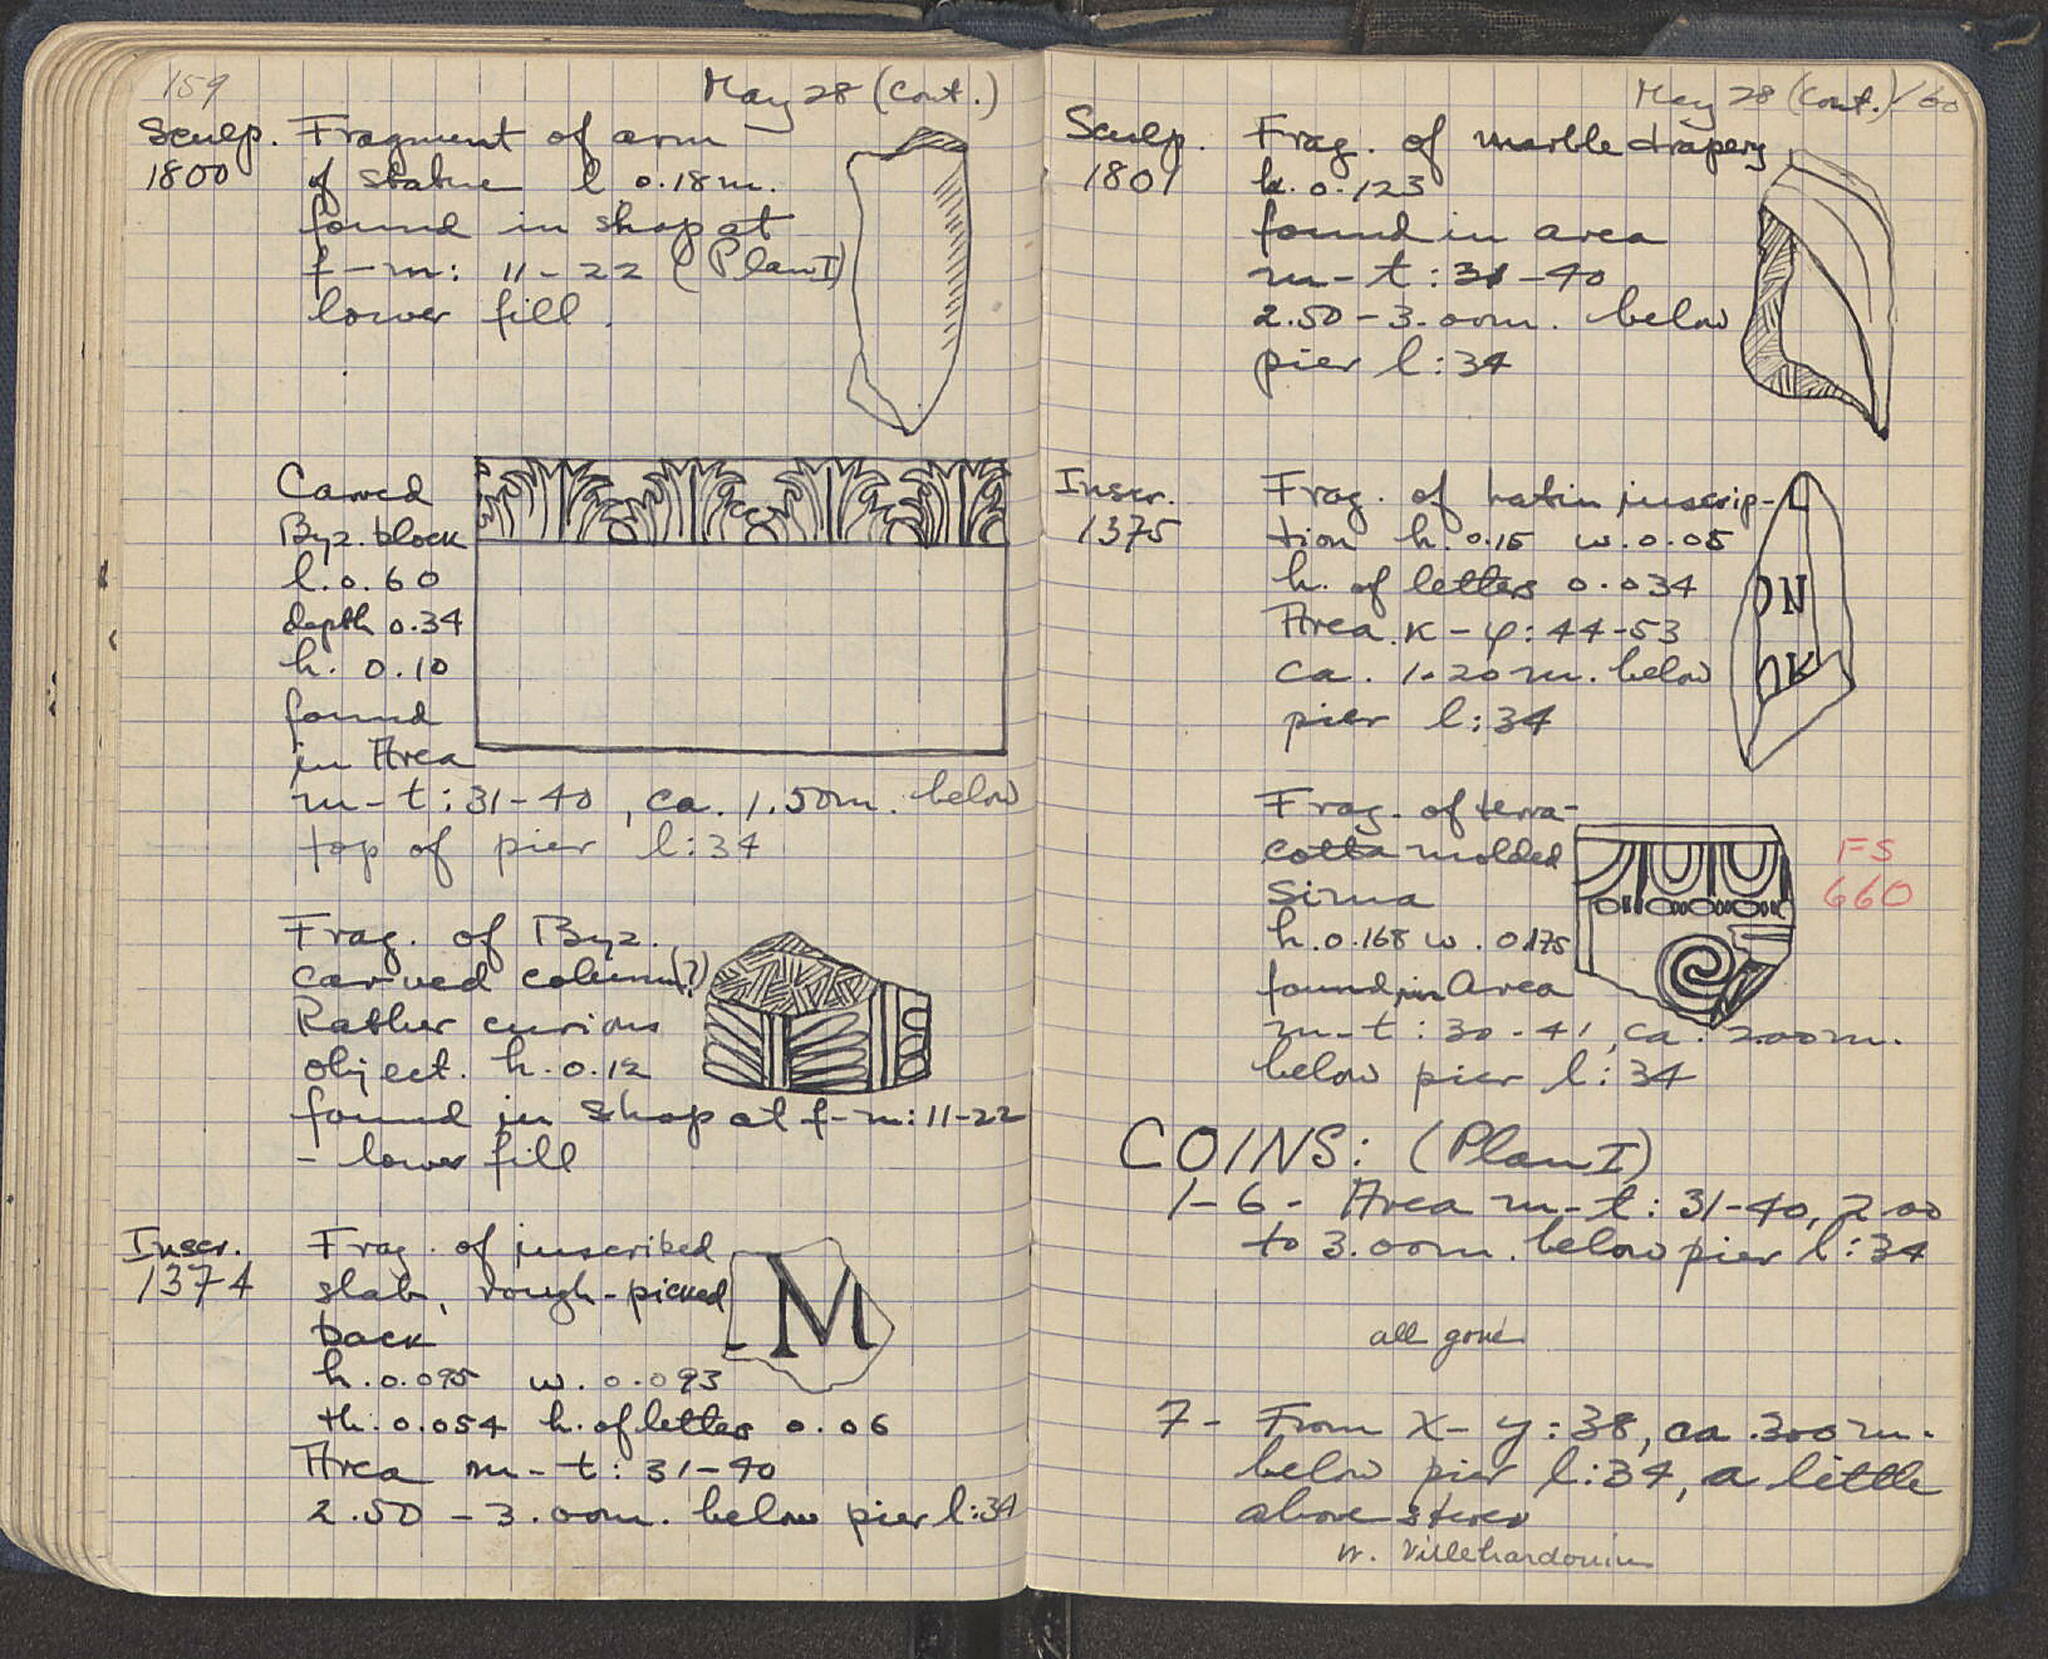 159
May 28 (cont.)
Sculp.
1800
Fragment of arm
of statue l 0.18m.
found in shop at
f-m: 11-22 (Plan I)
lower fill.
Carved
Byz. block
l. 0.60
depth 0.34
h. 0.10
found
in Area
m-t: 31-40, ca. 1.50m. below
top of pier l:34
Frag. of Byz.
carved column(?)
Rather curious
object. h. 0.12
found in shop at f-m: 11-22
- lower fill
Inscr.
1374
Frag. of inscribed
slab, rough-picked
back
h. 0.095 w. 0.093
th. 0.054 h. of letter 0.06
Area m-t: 31-40
2.50 - 3.00m. below pier l:34
M
May 28 (cont.) 160
Sculp.
1801
Frag. of marble drapery
h. 0.123
found in area
m-t: 31-40
2.50-3.00m. below
pier l:34
Inscr.
1375
Frag. of Latin inscrip-
tion h. 0.15 w. 0.05
h. of letters 0.034
Area κ-φ: 44-53
ca. 1.20m. below
pier l:34
ON
OK
Frag. of terra-
cotta molded
sima
h. 0.168 w. 0.175
found in Area
m-t: 30-41, ca. 2.00m.
below pier l:34
FS
660
COINS: (Plan I)
1-6- Area m-t: 31-40, 2.00
to 3.00m. below pier l:34
all gone
7- From X-y: 38, ca. 3.00m.
below pier l:34, a little
above stereo
W. Villehardouin